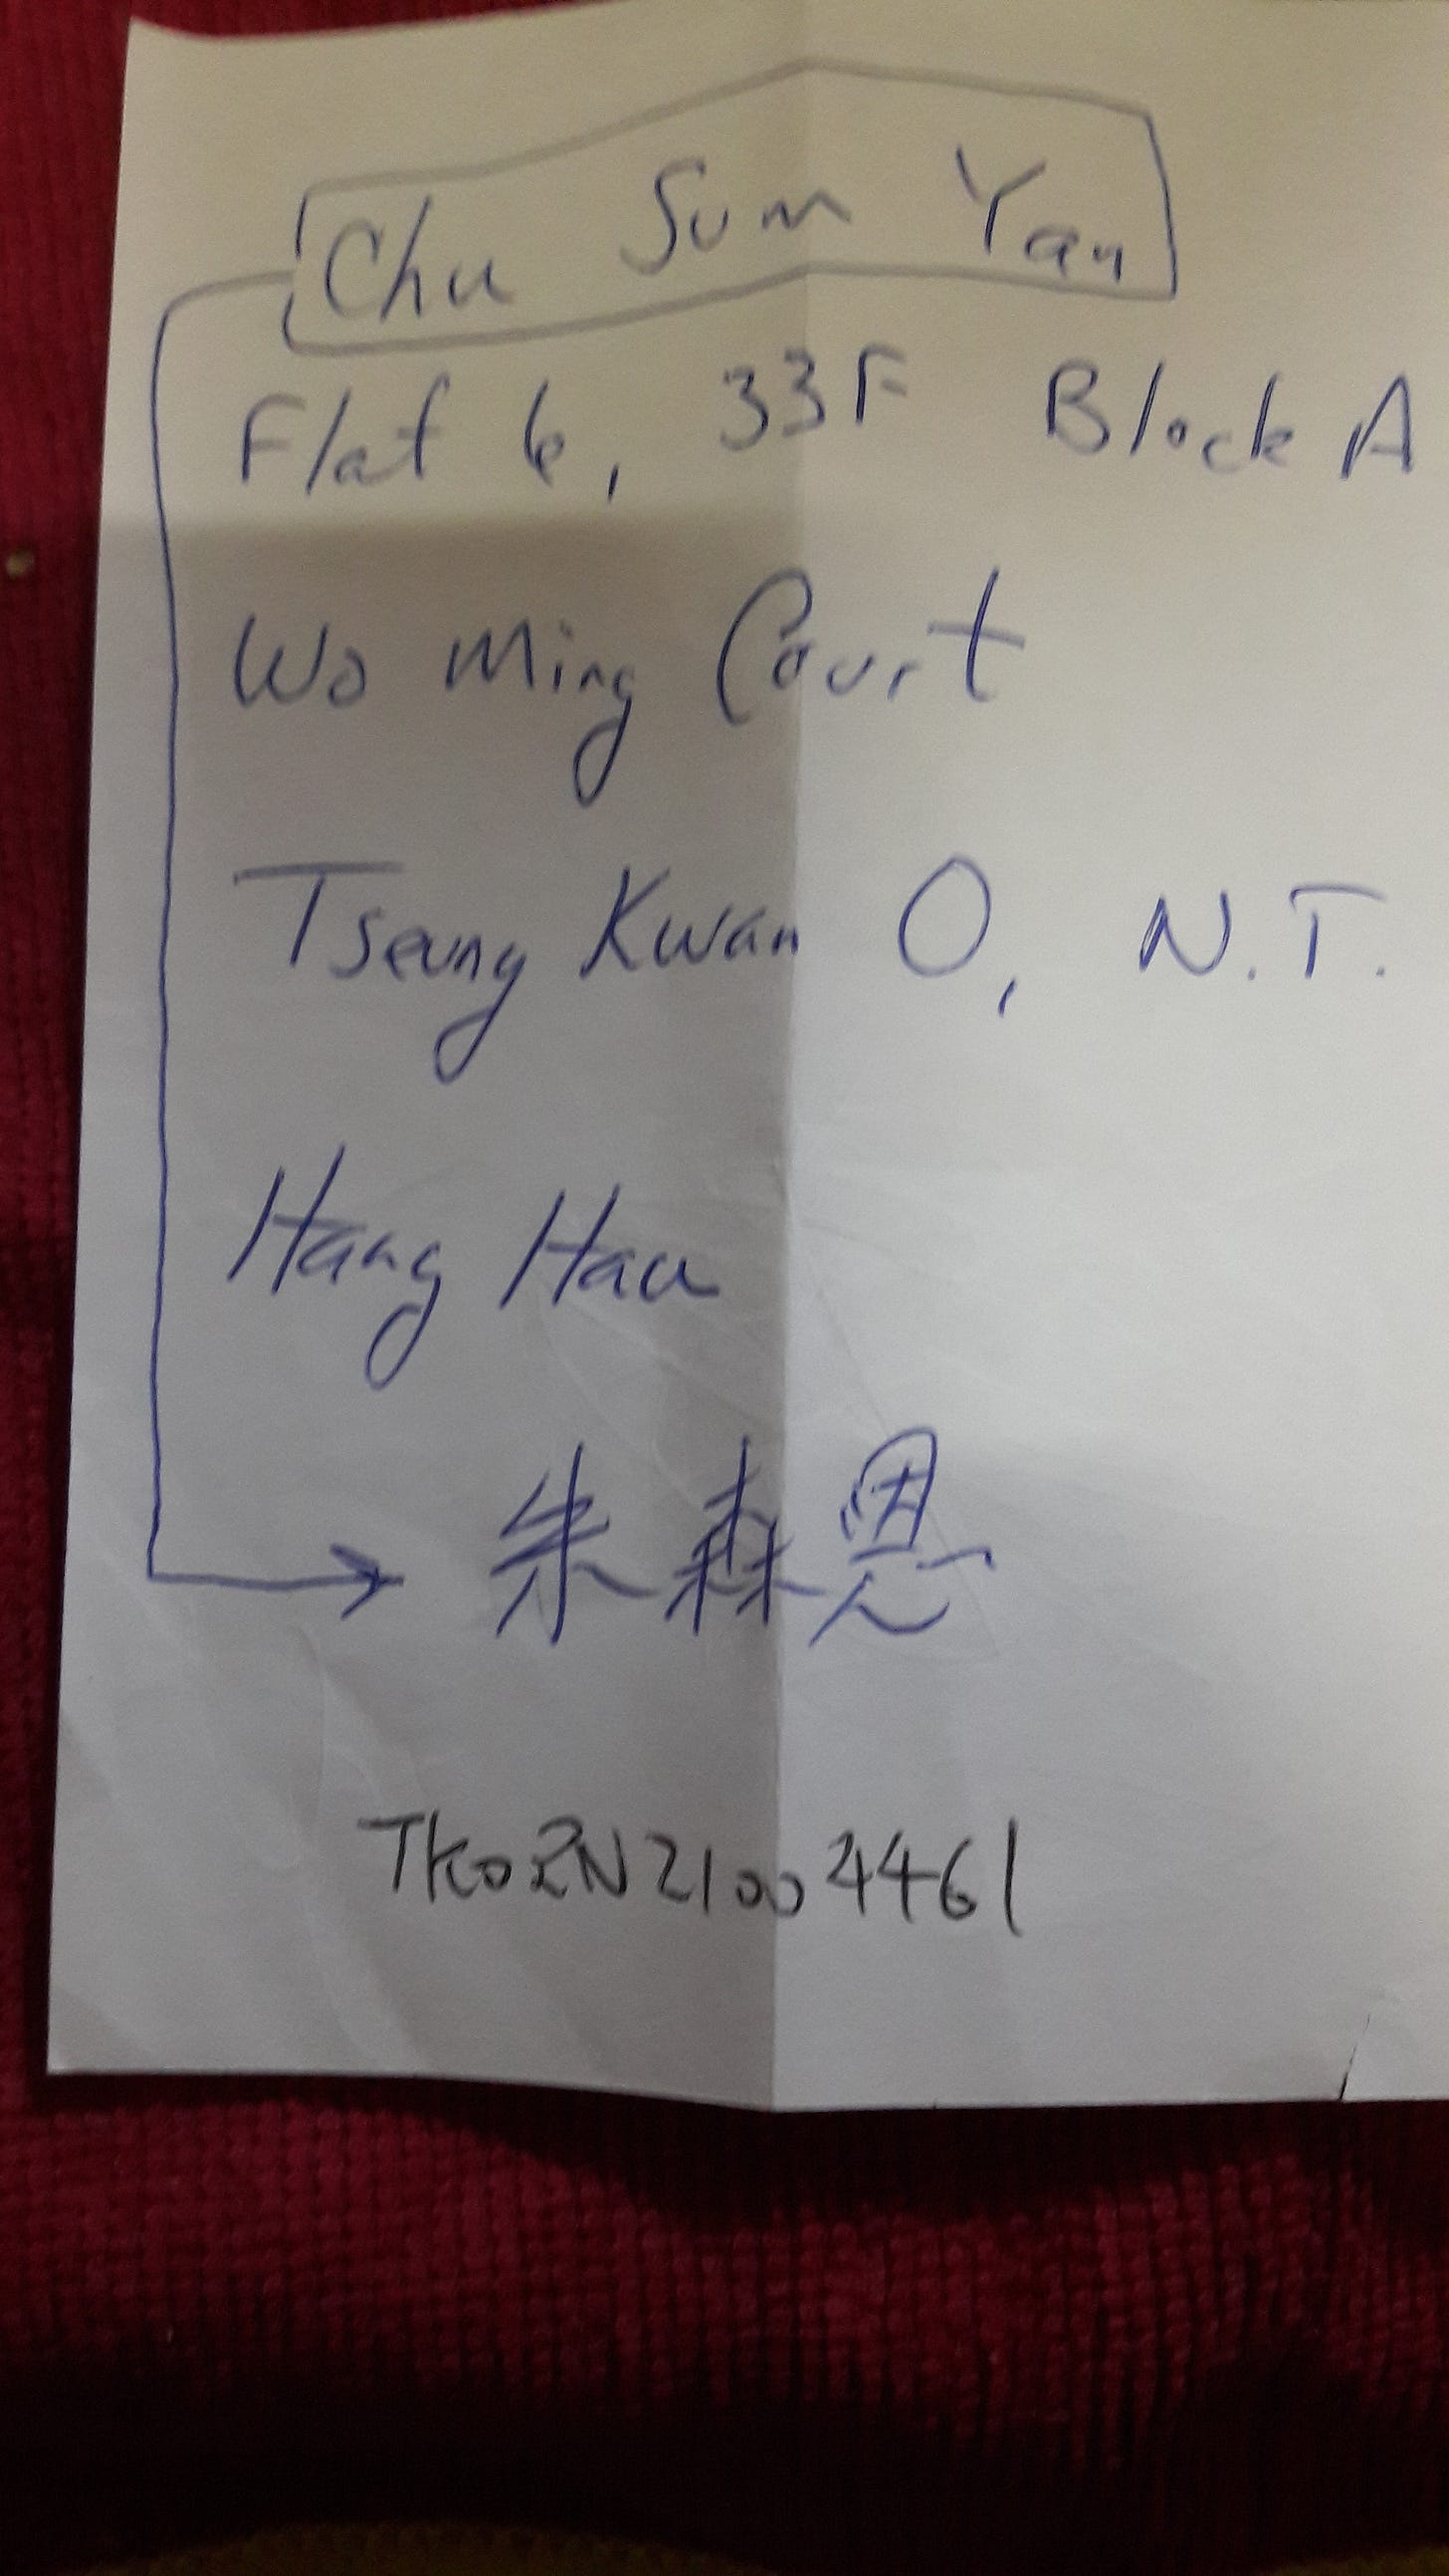 Chu Sum Yan
Flat 6, 33F Block A
Wo Ming Court
Tseung Kwan O, N.T.
Hang Hau
朱森恩
TKORN21004461